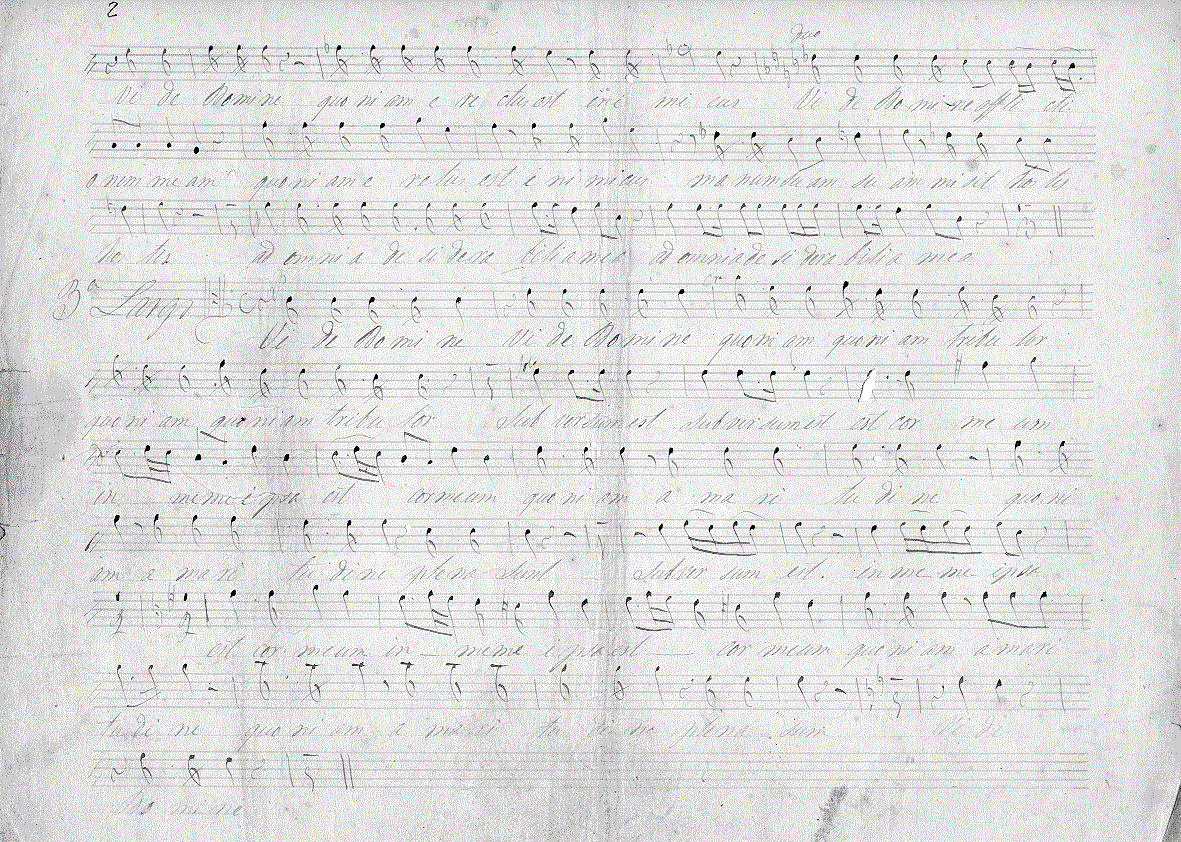 2
duo
Vi de Domine quoniam e re ctus est ini mi cus Vi de Do mi ne affli cti
o nem me am quo ni am e rectus est e ni micus manum su am su am mi sit ho tis
ho tis ad omni a de si dera bilia mea ad omnia de si dera bilia mea
3ª Largo Vi de Do mi ne Vi de Do mi ne quoni am quo ni am tribu lor
quo ni am quo ni am tribu lor sub versum est sub versum est est cor me um
in meme ipsa est cor meum quo ni am a ma ri tu di ne quo ni
am a ma ri tu di ne plena sum subver sum est. in me me ipsa
est cor meum in meme ipsa est cor meum quo ni am a mari
tu di ne quo ni am a ma ri tu di ne plena sum Vi de
Do mi ne